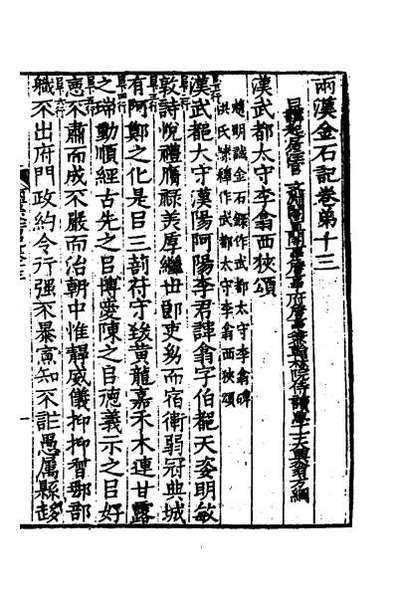 兩漢金石記卷第十三
日講起居注官文淵閣直閣事詹事府詹事兼翰林院侍讀學士大興翁方綱
漢武都太守李翕西狹頌
趙明誠金石錄作武都太守李翕碑
洪氏隸釋作武都太守李翕西狹頌
漢武都大守漢陽阿陽李君諱翕字伯都天姿明敏
敦詩悅禮膺祿美厚繼世郎吏幼而宿衛弱冠典城
有阿鄭之化是㠯三剖符守致黃龍嘉禾木連甘露
之瑞動順經古先之㠯博愛陳之㠯德義示之㠯好
惡不肅而成不嚴而治朝中惟靜威儀抑抑督郵部
職不出府門政約令行强不暴寡知不詐愚屬縣趍